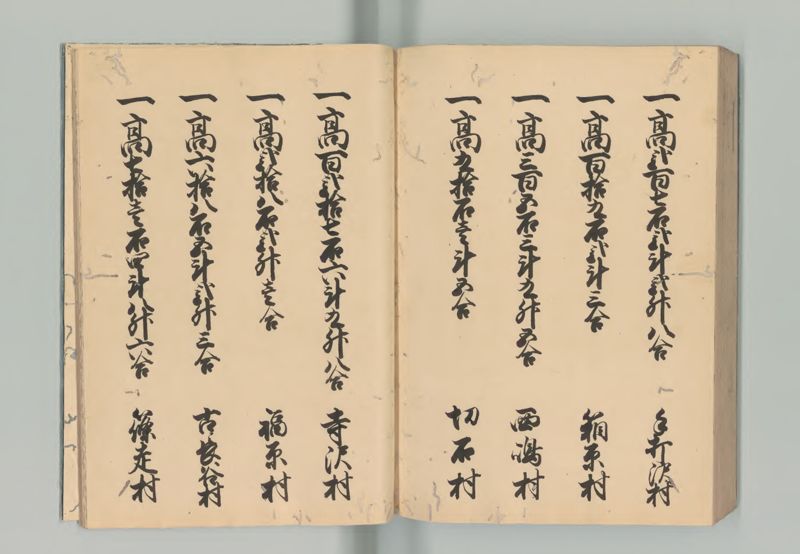 一高弐百七石弐斗弐升八合 手打沢村
一高百拾九石弐斗三合 箱原村
一高三百五石三斗九升五合 西嶋村
一高九拾石壱斗五合 切石村
一高百弐拾七石六斗九升八合 寺沢村
一高弐拾八石弐升壱合 福原村
一高六拾八石五斗弐升三合 古長谷村
一高七拾壱石四斗八升六合 村